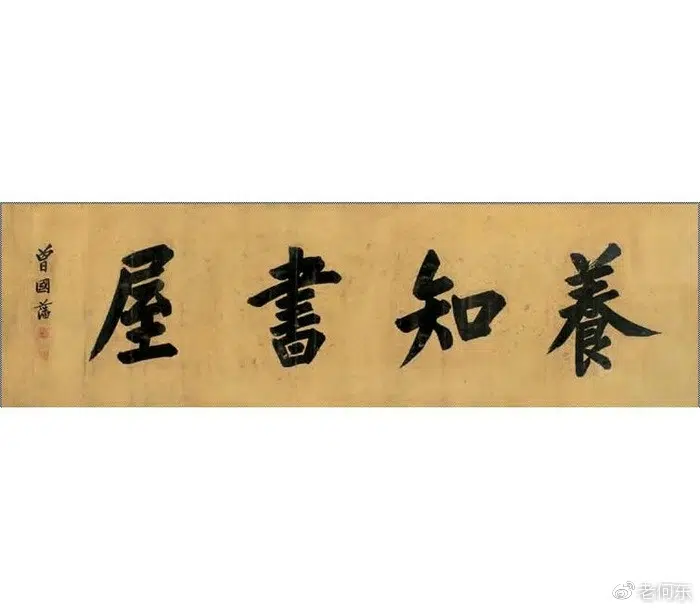 養知書屋
曾國藩
老何东